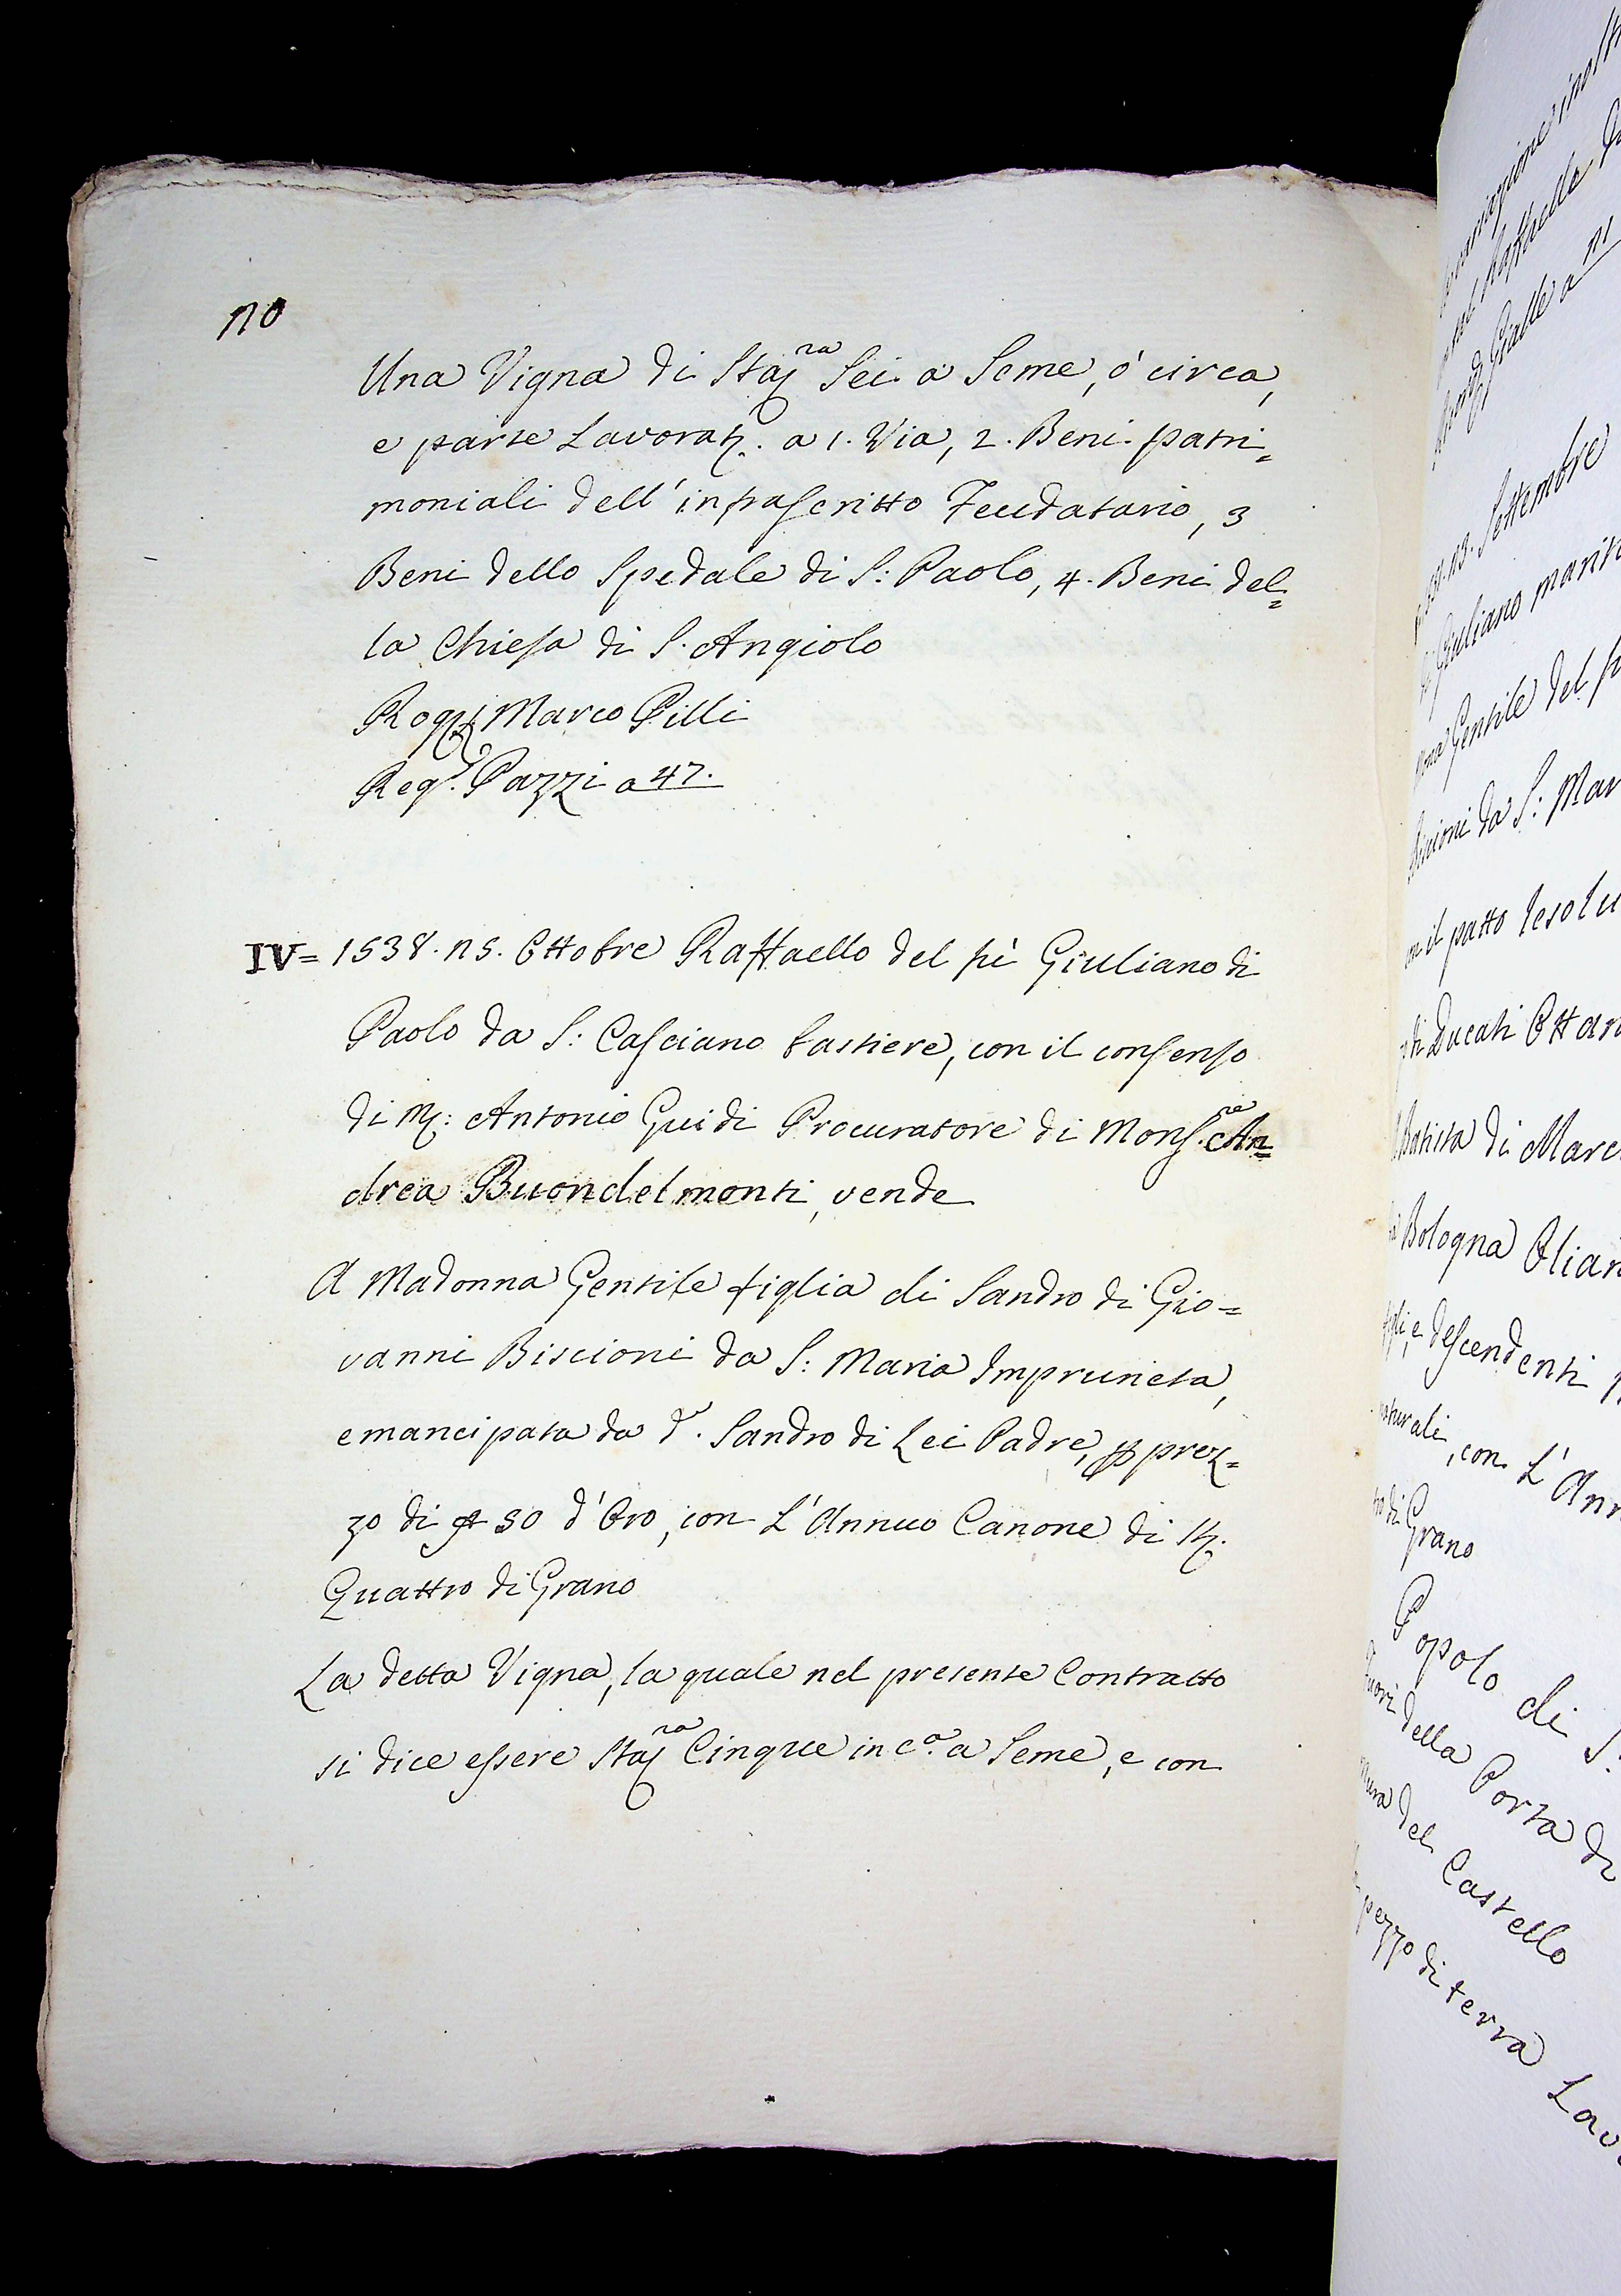 110
Una Vigna di Staj.ra Sei a Seme, ò circa,
e parte Lavorat. a 1. Via, 2. Beni patri=
moniali dell' infrascritto Feudatario, 3
Beni dello Spedale di S: Paolo, 4. Beni del=
la Chiesa di S. Angiolo
Rog. Marco Pilli
Reg.º Pazzi a 47.
IV= 1538. 15. Ottobre Raffaello del fù Giuliano di
Paolo da S: Casciano bastiere, con il consenso
di M: Antonio Guidi Procuratore di Mons.re An=
drea Buondelmonti, vende
A Madonna Gentile figlia di Sandro di Gio=
vanni Biscioni da S: Maria Impruneta,
emancipata da d.º Sandro di Lei Padre, p prez=
zo di 50 d'Oro, con L'Annuo Canone di St.
Quattro di Grano
La detta Vigna, la quale nel presente Contratto
si dice essere Staj.ra Cinque in c.a a Seme, e con
111
Settembre
Giuliano marit
Gentile del
Biscioni da S: Mar
il patto resolu
di Ducati Ottan
Batista di Marc
Bologna
e descendenti
naturali, con L'Ann
di Grano
Popolo di S.
fuori della Porta di
mura del Castello
pezzo di terra Lav